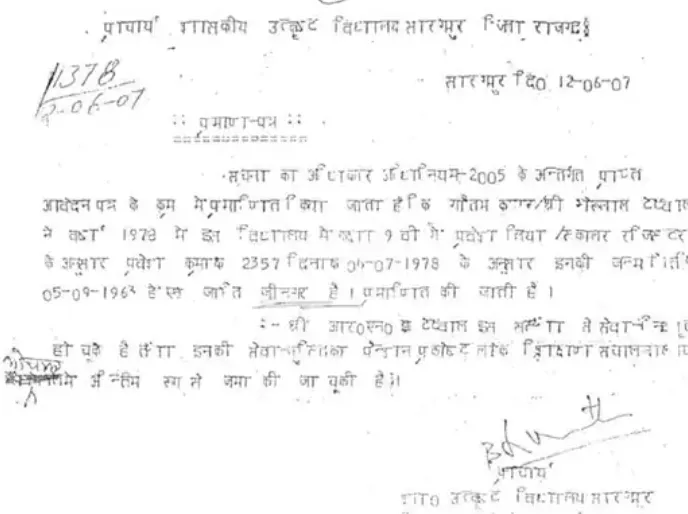 प्राचार्य शासकीय उत्कृष्ट विद्यालय सारंगपुर जिला राजगढ़
1378
12-06-07
सारंगपुर दि0 12-06-07
:: प्रमाण-पत्र ::
सूचना का अधिकार अधिनियम-2005 के अन्तर्गत प्राप्त
आवेदन पत्र के क्रम में प्रमाणित किया जाता है कि गौतम श्री टेटवाल
ने वर्ष 1978 में इस विद्यालय में कक्षा 9 वी में प्रवेश लिया स्कालर रजिस्टर
के अनुसार प्रवेश क्रमांक 2357 दिनांक 06-07-1978 के अनुसार इनकी जन्म तिथि
05-09-1963 है एवं जाति जीनगर है । प्रमाणित की जाती है ।
:- श्री आर0एन0 टेटवाल इस संस्था से सेवानिवृत्त
हो चुके है तथा इनकी सेवा-पुस्तिका पेन्शन प्रकोष्ठ लोक शिक्षण संचालनालय
भोपाल में अन्तिम रूप से जमा की जा चुकी है।।
प्राचार्य
शा0 उत्कृष्ट विद्यालय सारंगपुर